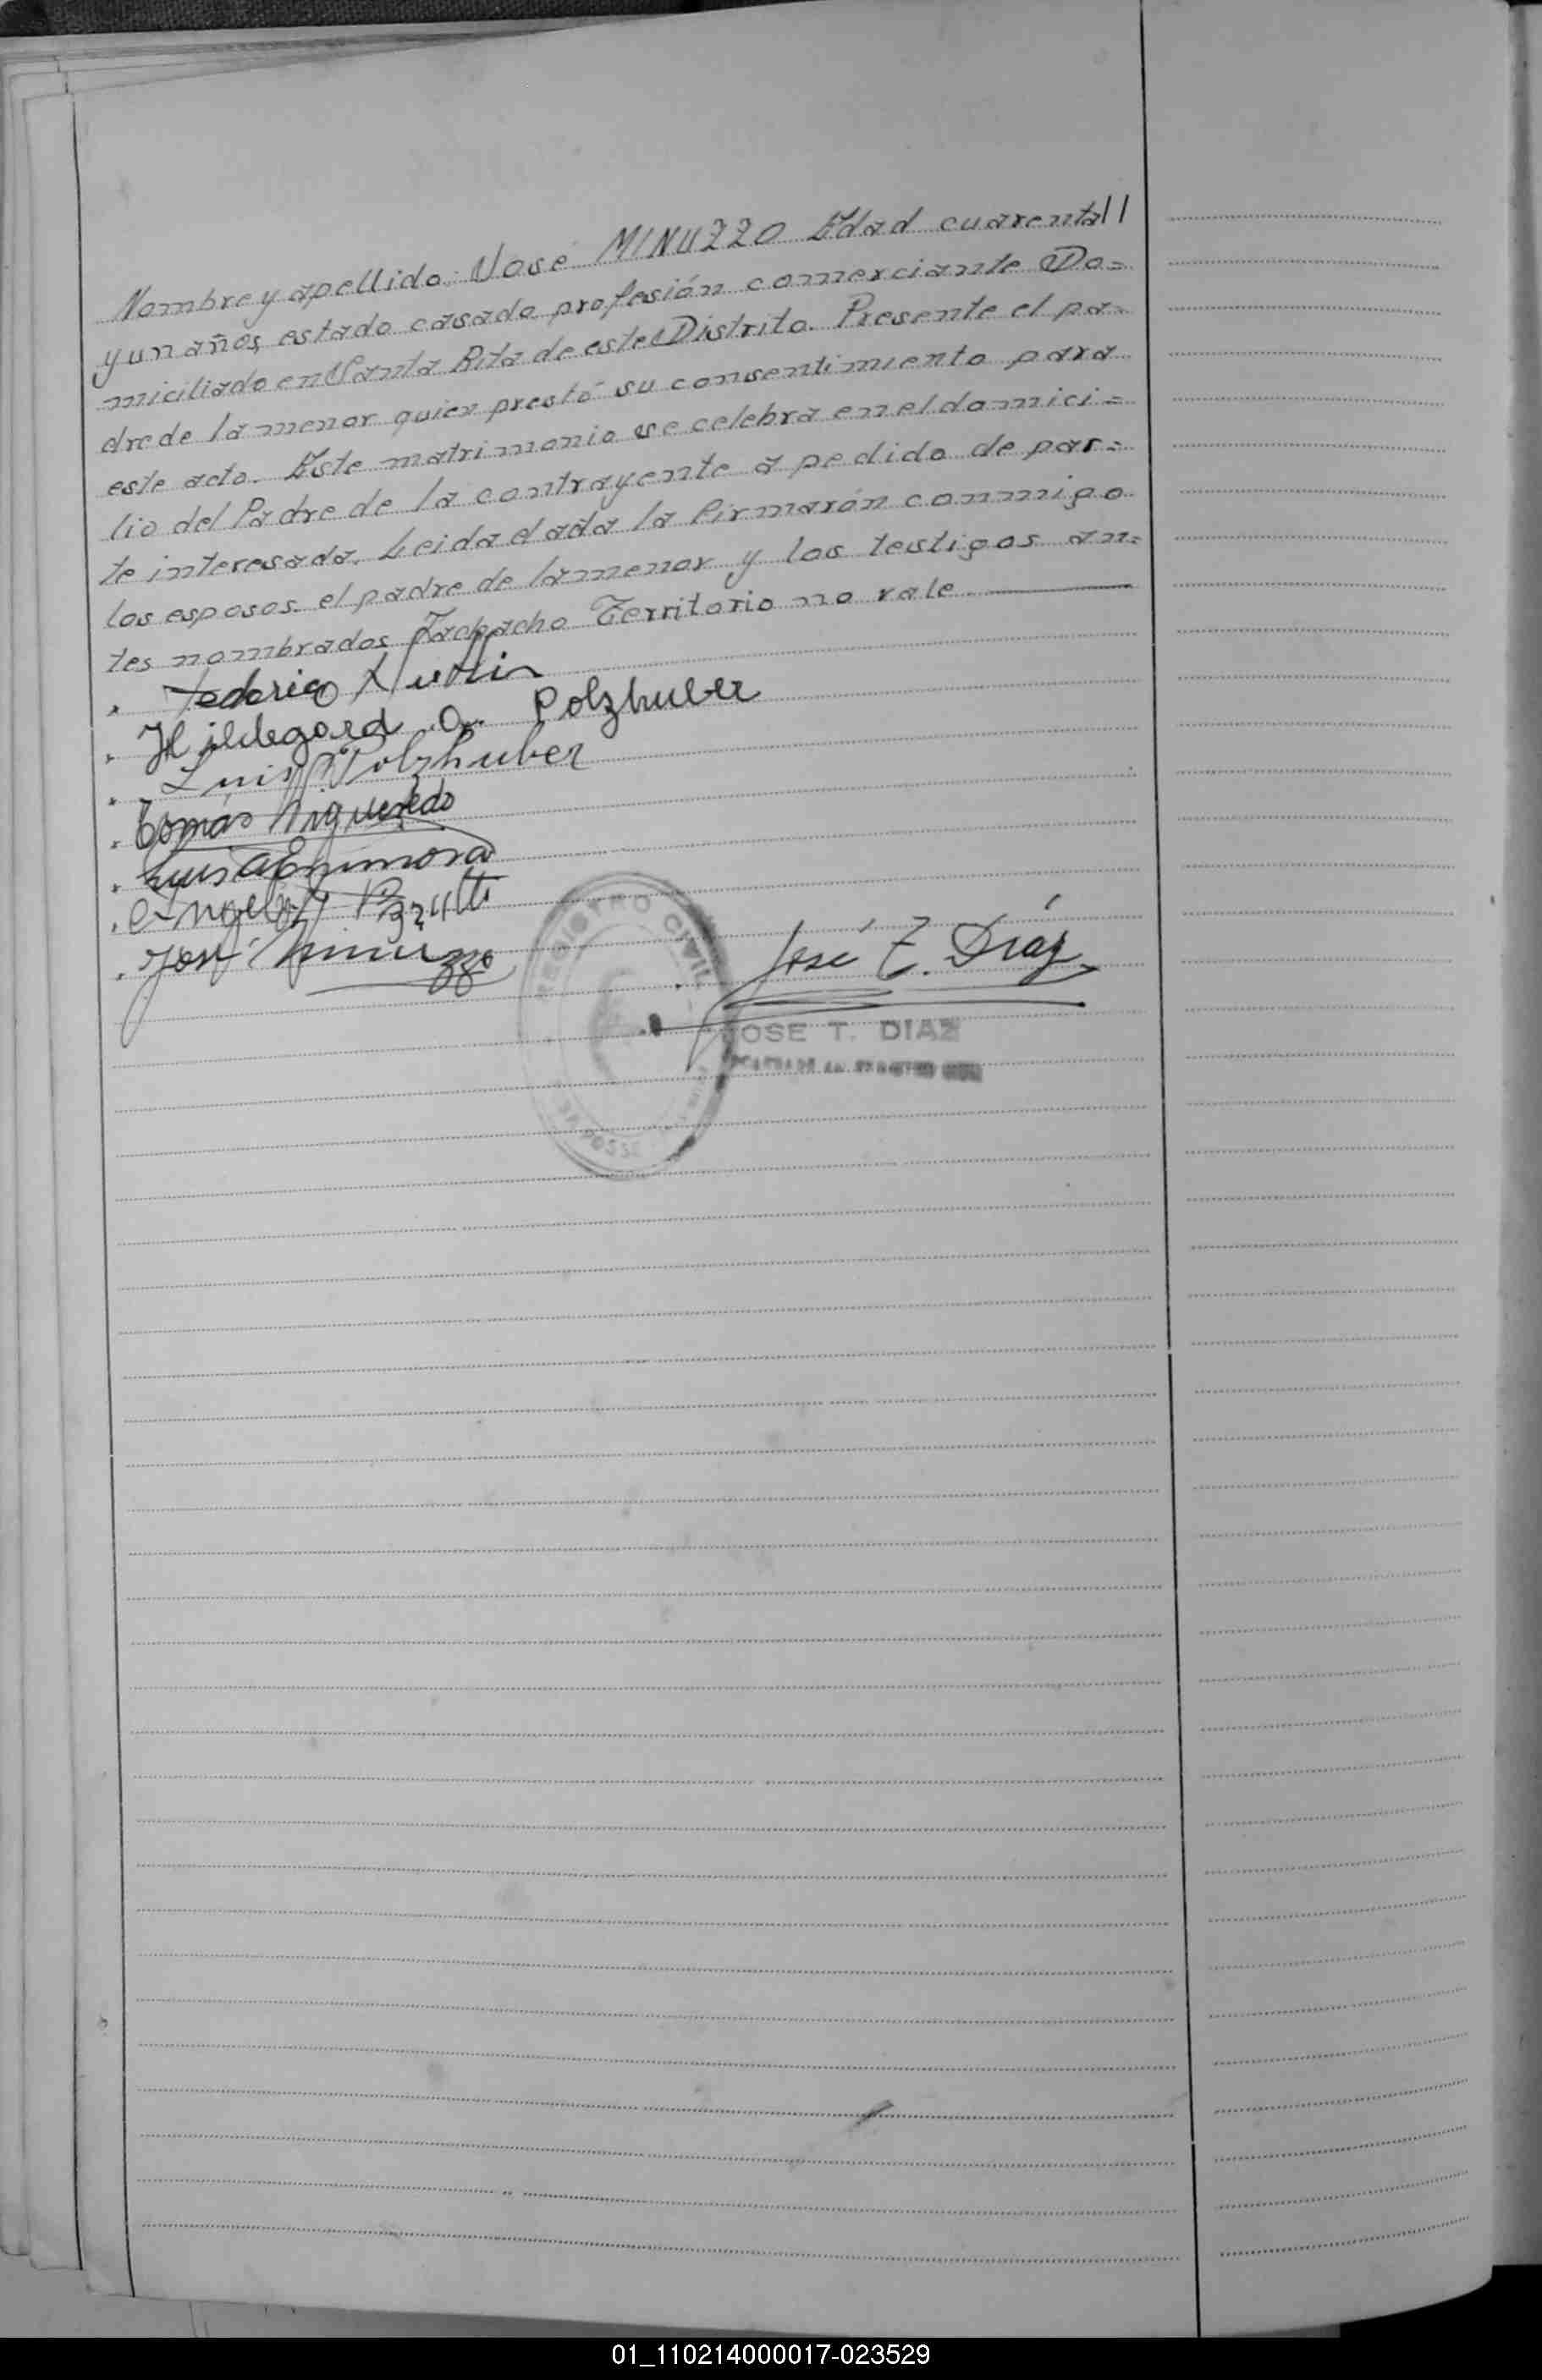 Nombre y apellido José MINUZZO Edad cuarenta //
y un años, estado casado profesión comerciante Do=
miciliado en Santa Rita de este Distrito. Presente el pa=
dre de la menor quien prestó su consentimiento para
este acto. Este matrimonio se celebra en el domici=
lio del Padre de la contrayente a pedido de par=
te interesada. Leida el acta la firmarón conmigo
los esposos el padre de la menor y los testigos an=
tes nombrados Territorio no vale.
Federico
Hildegard O. Polzhuber
Luis Polzhuber
Tomás Figueredo
Luis A
José Minuzzo
José T. Díaz
REGISTRO CIVIL
JOSE T. DIAZ